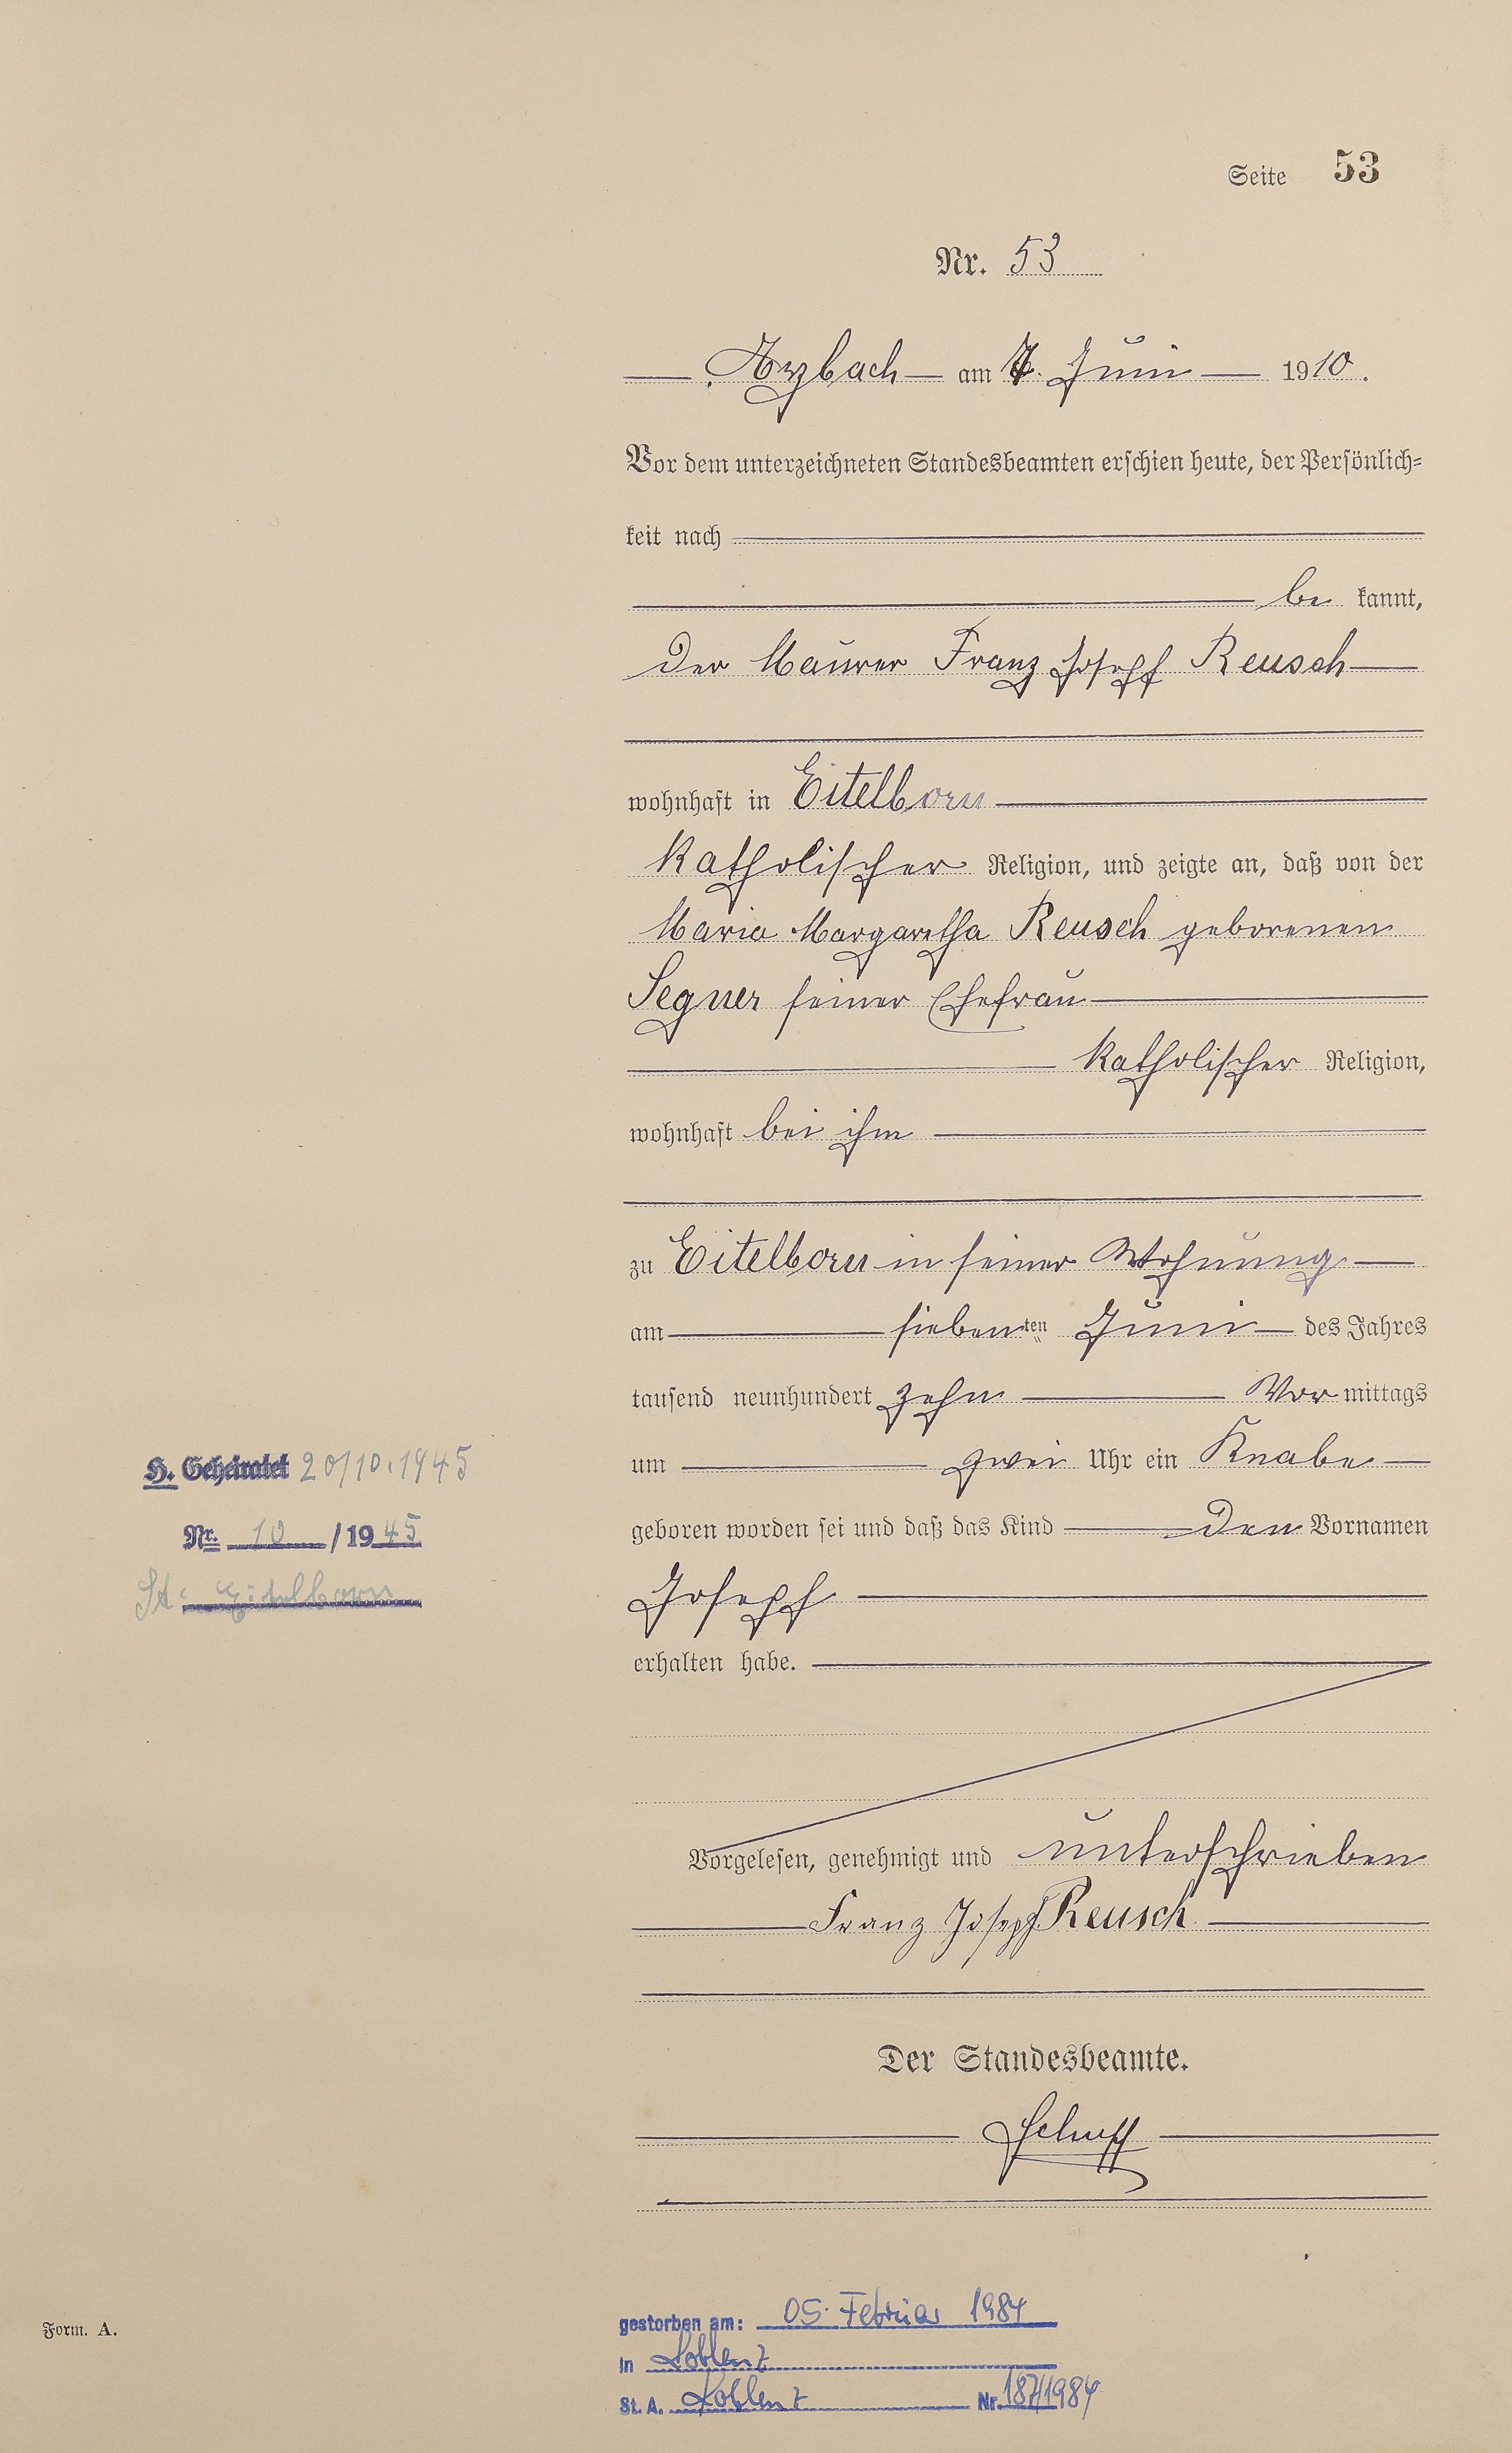 Seite 53
Nr. 53
Arzbach am 7. Juni 1910.
Vor dem unterzeichneten Standesbeamten erschien heute, der Persönlich-
keit nach
be kannt,
der Maurer Franz Joseph Reusch
wohnhaft in Eitelborn
katholischer Religion, und zeigte an, daß von der
Maria Margaretha Reusch geborenen
Segner seiner Ehefrau
katholischer Religion,
wohnhaft bei ihm
zu Eitelborn in seiner Wohnung
am siebenten Juni des Jahres
tausend neunhundert zehn Vormittags
um zwei Uhr ein Knabe
geboren worden sei und daß das Kind den Vornamen
Joseph
erhalten habe.
Vorgelesen, genehmigt und unterschrieben
Franz Joseph Reusch
Der Standesbeamte.
H. Geheiratet 20/10.1945
Nr. 10 / 1945
St: Eitelborn
gestorben am: 05. Februar 1984
in Koblenz
St. A. Koblenz Nr. 187/1984
Form. A.